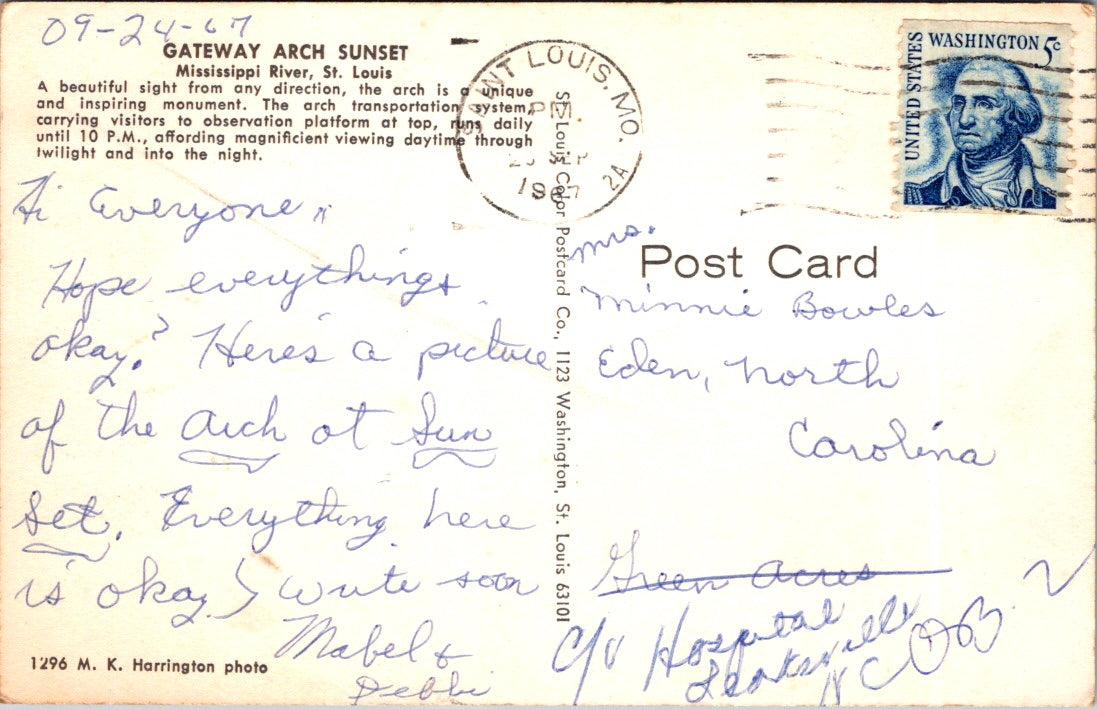 09-24-67
GATEWAY ARCH SUNSET
Mississippi River, St. Louis
A beautiful sight from any direction, the arch is a unique
and inspiring monument. The arch transportation system,
carrying visitors to observation platform at top, runs daily
until 10 P.M., affording magnificient viewing daytime through
twilight and into the night.
Hi Everyone,,
Hope everythings
okay? Here's a picture
of the Arch at Sun
Set. Everything here
is okay. Write soon
Mabel &
Debbi
1296 M. K. Harrington photo
St. Louis Color Postcard Co., 1123 Washington, St. Louis 63101
SAINT LOUIS, MO.
PM
SEP
1967
2A
UNITED STATES
WASHINGTON 5c
Post Card
Mrs.
Minnie Bowles
Eden, North
Carolina
Green Acres
c/o Hospital
Leaksville
NC